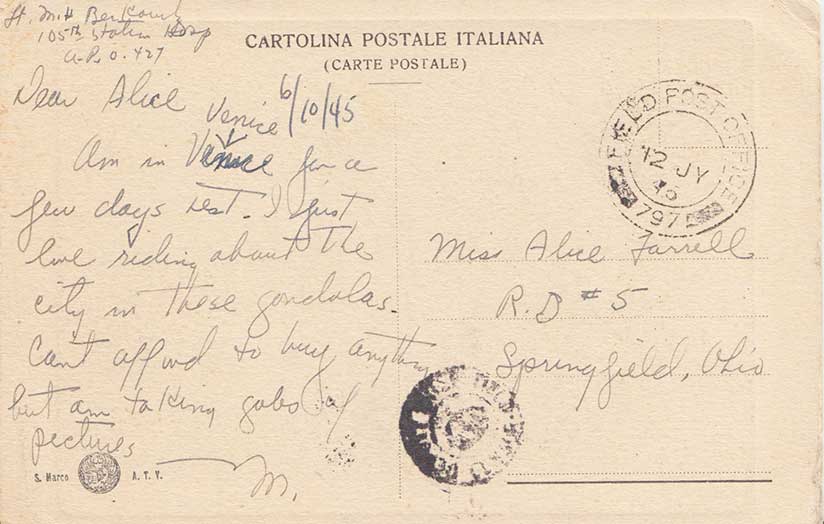 Lt. M.H. Berkowitz
105th Station Hosp
A.P.O. 427
CARTOLINA POSTALE ITALIANA
(CARTE POSTALE)
Dear Alice
6/10/45
Venice
Am in Venice for a
few days rest. I just
love riding about the
city in these gondolas.
Cant afford to buy anything
but am taking gobs of
pictures
M.
S. Marco A. T. V.
FIELD POST OFFICE
12 JY
45
797
Miss Alice Farrell
R.D #5
Springfield, Ohio